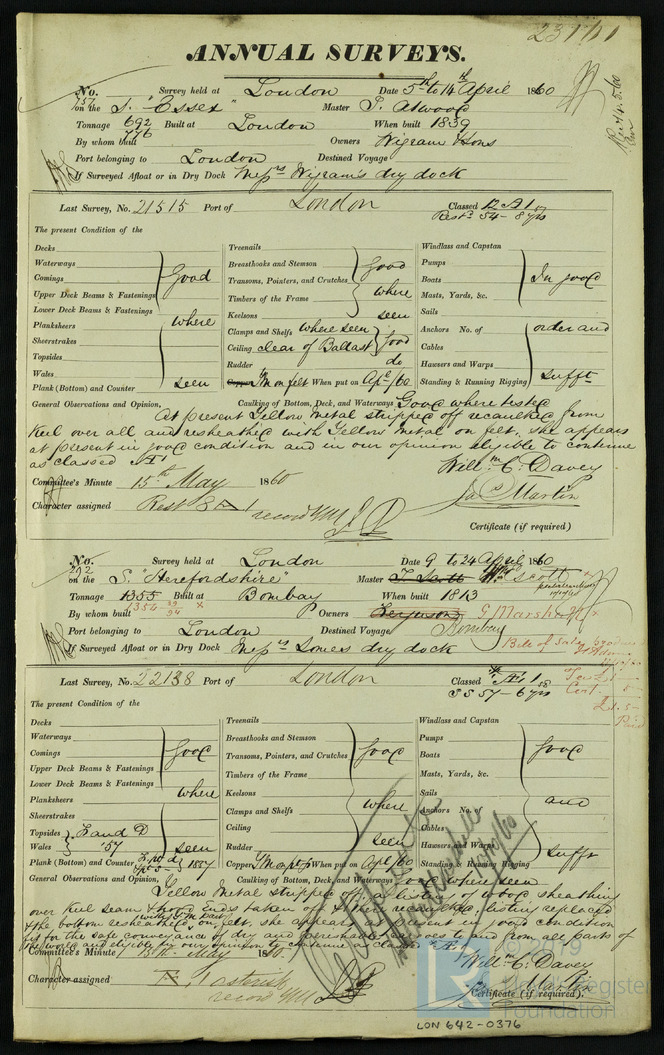 231/11
ANNUAL SURVEYS.
No. 757 Survey held at London Date 5th to 14th April 1860
on the S. "Essex" Master S. Atwood
Tonnage 692 776 Built at London When built 1839
By whom built Owners Wigram & Sons
Port belonging to London Destined Voyage
If Surveyed Afloat or in Dry Dock Messrs Wigram's dry dock
Last Survey, No. 21515 Port of London Classed 12 A1
Restd 54 - 8 yrs
The present Condition of the
Decks
Waterways
Comings
Upper Deck Beams & Fastenings
Lower Deck Beams & Fastenings
Planksheers
Sheerstrakes
Topsides
Wales
Plank (Bottom) and Counter
Good where seen
Treenails
Breasthooks and Stemson
Transoms, Pointers, and Crutches
Timbers of the Frame
Keelsons
good where seen
Clamps and Shelfs where seen
Ceiling clear of Ballast good
Rudder do
Copper YM on felt When put on Apl/60
Windlass and Capstan
Pumps
Boats
Masts, Yards, &c.
Sails
Anchors No. of
Cables
Hawsers and Warps
Standing & Running Rigging
In good order and sufft
General Observations and Opinion, Caulking of Bottom, Deck, and Waterways Good where tested
At present Yellow Metal stripped off recaulked from
Keel over all and resheathed with Yellow Metal on felt, she appears
at present in good condition and in our opinion eligible to continue
as classed Æ1
Willm C. Davey
Jas Martin
Committee's Minute 15th May 1860
Character assigned Restd 8 A 1
record YM
Certificate (if required)
No. 292 Survey held at London Date 9 to 24 April 1860
on the S. "Herefordshire" Master T. Scott Wm Scott
Tonnage 1355 Built at Bombay When built 1813
1354 29/94
By whom built Owners Ferguson G Marshall
Port belonging to London Destined Voyage Bombay
If Surveyed Afloat or in Dry Dock Messrs Somes dry dock
Last Survey, No. 22138 Port of London Classed Æ1 58
SS 57 - 6 yrs
The present Condition of the
Decks
Waterways
Comings
Upper Deck Beams & Fastenings
Lower Deck Beams & Fastenings
Planksheers
Sheerstrakes
Topsides
Wales
'57
Plank (Bottom) and Counter 1857
good where seen
Treenails
Breasthooks and Stemson
Transoms, Pointers, and Crutches
Timbers of the Frame
Keelsons
Clamps and Shelfs
Ceiling
Rudder
good where seen
Copper When put on Apl/60
Windlass and Capstan
Pumps
Boats
Masts, Yards, &c.
Sails
Anchors No. of
Cables
Hawsers and Warps
Standing & Running Rigging
good and sufft
General Observations and Opinion, Caulking of Bottom, Deck, and Waterways good where seen
Yellow Metal stripped off, a listing of wood sheathing
over keel seams & hood Ends taken off & then recaulked, listing replaced
& the bottom resheathed with YM part on felt, she appears at present in good condition
fit for the safe conveyance of dry and perishable cargoes to and from all parts of
the world and eligible in our opinion to continue as classed Æ1
Willm C. Davey
Jas Martin
Committee's Minute 15th May 1860
Character assigned Æ 1 asterisk
record YM
Certificate (if required).
© 2019
Lloyd's Register
Foundation
LON 642-0376